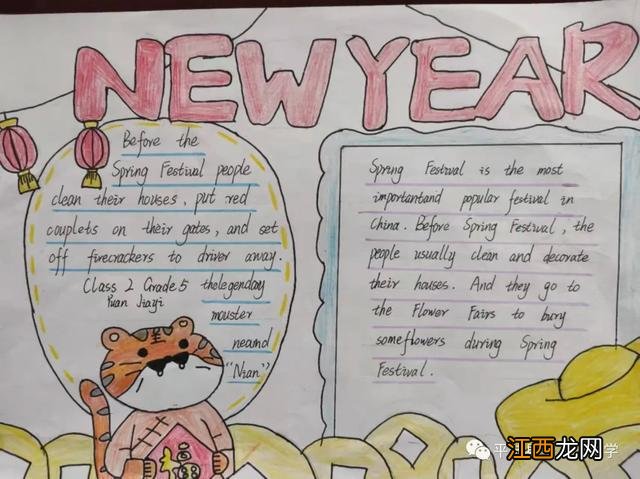 NEW YEAR
Before the
Spring Festival people
clean their houses, put red
couplets on their gates, and set
off firecrackers to driver away.
Class 2 Grade 5 thelegenday
Yuan Jiayi
mouster
neamd
"Nian"
Spring Festival is the most
importantand popular festival in
China. Before Spring Festival, the
people usually clean and decorate
their houses. And they go to
the Flower Fairs to bury
someflowers during Spring
Festival.
福
江西龙网